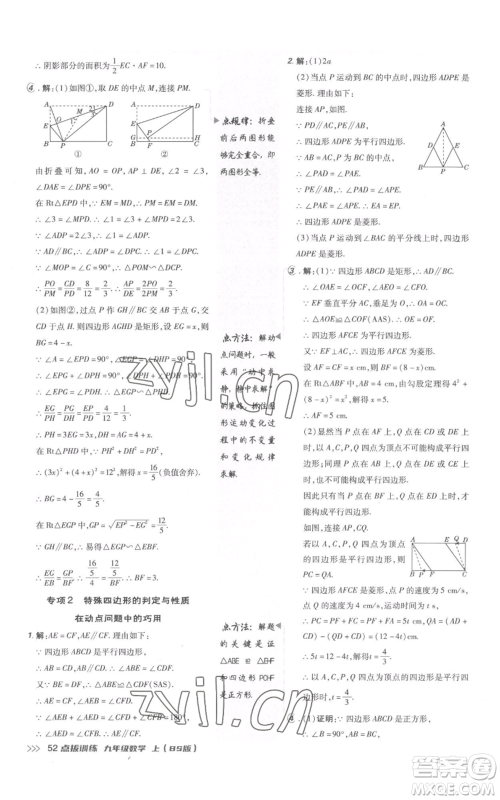 ∴ 阴影部分的面积为 1/2 EC·AF=10.
④. 解:(1)如图①,取 DE 的中点 M,连接 PM.
A
D
E
B
P
C
①
A
D
E
G
H
B
F
C
②
由折叠可知,AO=OP,AP⊥DE,∠2=∠3,
∠DAE=∠DPE=90°.
在Rt△EPD 中,∵EM=MD,∴PM=EM=DM,
∴∠3=∠MPD.
∴∠1=∠3+∠MPD=2∠3.
∵∠ADP=2∠3,∴∠1=∠ADP.
∵AD∥BC,∴∠ADP=∠DPC.∴∠1=∠DPC.
∵∠MOP=∠C=90°,∴△POM∽△DCP.
∴PO/PM=CD/PD=8/12=2/3.∴AP/DE=2PO/2PM=2/3.
(2)如图②,过点 P 作 GH∥BC 交 AB 于点 G,交 CD 于点 H,则四边形 AGHD 是矩形,设 EG=x,则 BG=4-x.
∵∠A=∠EPD=90°,∠EGP=∠DHP=90°,
∴∠EPG+∠DPH=90°,∠DPH+∠PDH=90°.
∴∠EPG=∠PDH.∴△EGP∽△PHD.
∴EG/PH=PG/DH=EP/PD=4/12=1/3.
∴PH=3EG=3x,DH=AG=4+x.
在Rt△PHD 中,∵PH²+DH²=PD²,
∴(3x)²+(4+x)²=12².∴x=16/5(负值舍弃).
∴BG=4-16/5=4/5.
在Rt△EGP 中,GP=√(EP²-EG²)=12/5.
∵GH∥BC,∴△EGP∽△EBF.
∴EG/EB=GP/BF.∴(16/5)/4=(12/5)/BF.∴BF=3.
专项2 特殊四边形的判定与性质
在动点问题中的巧用
1. 解:AE=CF,AE∥CF.理由如下:
∵四边形 ABCD 是正方形,
∴AB=BC,∠ABC=90°.
又∵BE=BF,∴△ABE≌△CBF(SAS).
∴AE=CF,∠AEB=∠CFB.
点规律:折叠
前后两图形能
够完全重合,即
两图形全等.
点方法:解动
点问题时,一般
采用“动中求
静,静中求解”
的策略,抓住图
形运动变化过
程中的不变量
和变化规律
求解.
点方法:解题
的关键是证
和四边形
是正方形.
2. 解:(1)2a
(2)当点 P 运动到 BC 的中点时,四边形 ADPE 是菱形.理由如下:
连接 AP,如图.
∵PD∥AC,PE∥AB,
∴四边形 ADPE 为平行四边形.
∵AB=AC,BP=PC,
∴∠PAD=∠PAE.
∵AB∥PE,
∴∠APE=∠PAD.
∴∠PAE=∠APE.
∴EA=EP.
∴四边形 ADPE 是菱形.
A
D
E
B
P
C
(3)当点 P 运动到∠BAC 的平分线上时,四边形 ADPE 是菱形.
③. 解:(1)∵四边形 ABCD 是矩形,∴AD∥BC.
∴∠OAE=∠OCF,∠AEO=∠CFO.
∵EF 垂直平分 AC,垂足为 O,
∴OA=OC.
∴△AOE≌△COF.∴OE=OF.
∴四边形 AFCE 为平行四边形.
又∵EF⊥AC,
∴四边形 AFCE 为菱形.
设 AF=CF=x cm,则 BF=(8-x) cm,
在Rt△ABF 中,AB=4 cm,由勾股定理得 4²+(8-x)²=x²,解得 x=5.
∴AF=5 cm.
(2)显然当点 P 在 AF 上,点 Q 在 CD 上时,以 A,C,P,Q 四点为顶点的四边形不可能构成平行四边形;
因此只有当点 P 在 BF 上,点 Q 在 ED 上时,才能构成平行四边形.
如图,连接 AP,CQ.
若以 A,C,P,Q 四点为顶点的四边形是平行四边形,则 PC=QA.
∵点 P 的速度为 5 cm/s,点 Q 的速度为 4 cm/s,运动时间为 t s,
∴PC=PF+FC=PF+AF=5t cm,QA=(12-4t) cm.
∴5t=12-4t,解得 t=4/3.
∴以 A,C,P,Q 四点为顶点的四边形是平行四边形时,t=4/3.
∴∠AEB+∠BCF=∠CFB+∠BCF=90°.
52 点拨训练 九年级数学 上(BS版)
zyjl.cn
zyjl.cn